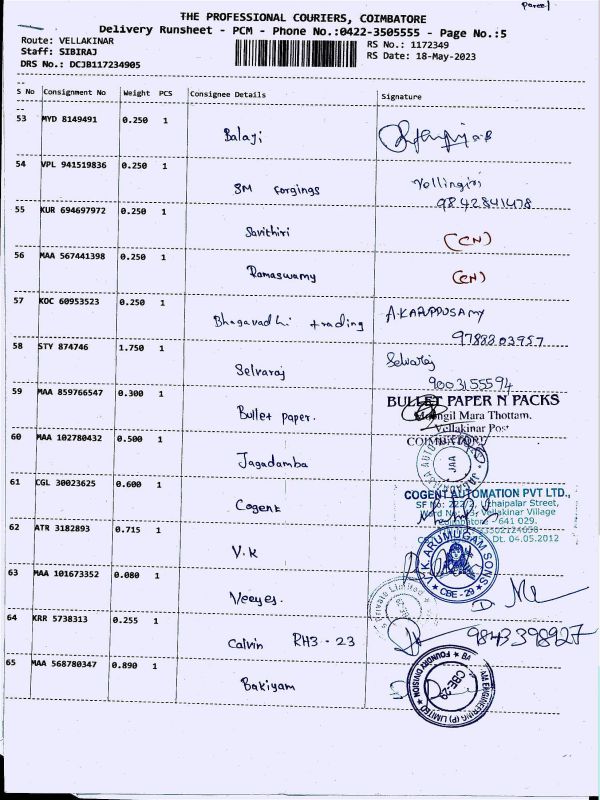 Parcel
THE PROFESSIONAL COURIERS, COIMBATORE
Delivery Runsheet - PCM - Phone No.:0422-3505555 - Page No.:5
Route: VELLAKINAR
RS No.: 1172349
Staff: SIBIRAJ
RS Date: 18-May-2023
DRS No.: DCJB117234905
S No Consignment No Weight PCS Consignee Details Signature
53 MYD 8149491 0.250 1 Balaji
54 VPL 941519836 0.250 1 SM forgings Vellingiri
9842841478
55 KUR 694697972 0.250 1 Savithiri (CN)
56 MAA 567441398 0.250 1 Ramaswamy (CN)
57 KOC 60953523 0.250 1 Bhagavadhi trading A.KARUPPUSAMY
9788303957
58 STY 874746 1.750 1 Selvaraj Selvaraj
9003155594
59 MAA 859766547 0.300 1 Bullet paper. BULLET PAPER N PACKS
Mara Thottam,
Vellakinar Post
COIMBATORE
60 MAA 102780432 0.500 1 Jagadamba JAA
61 CGL 30023625 0.600 1 Cogent COGENT AUTOMATION PVT LTD.,
SF No: 222/2, Uthaipalar Street,
Vellakinar Village
Coimbatore - 641 029.
Dt. 04.05.2012
62 ATR 3182893 0.715 1 V.K V.K.ARUMUGAM SONS
CBE - 29
63 MAA 101673352 0.080 1 Veeyes. Private Limited
64 KRR 5738313 0.255 1 Calvin RH3 - 23 9843398927
65 MAA 568780347 0.890 1 Bakiyam ENGINEERING (P) LIMITED FOUNDRY DIVISION
CBE-29